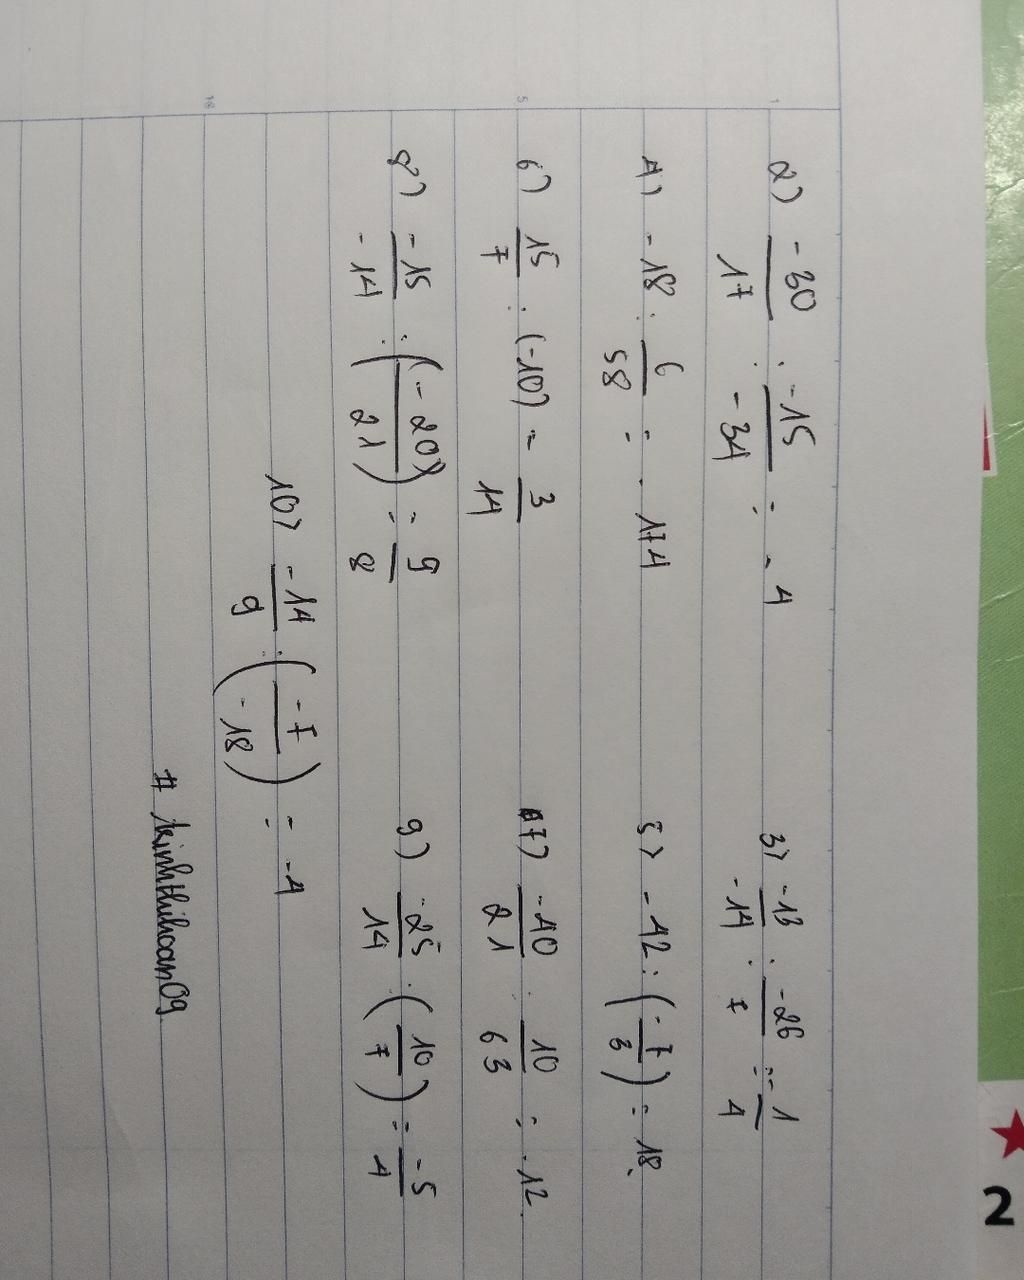 2) -30/17 : -15/-34 = -4
3) -13/-14 : -26/7 = -1/4
4) -18 : 6/58 = -174
5) -42 : (-7/3) = 18.
6) 15/7 : (-10) = 3/14
7) -40/21 : 10/63 = -12.
8) -15/-14 : (-20)/21) = 9/8
9) -25/14 : (10/7) = -5/4
10) -14/9 : (-7/-18) = -4
# kinhthihoan09.
2